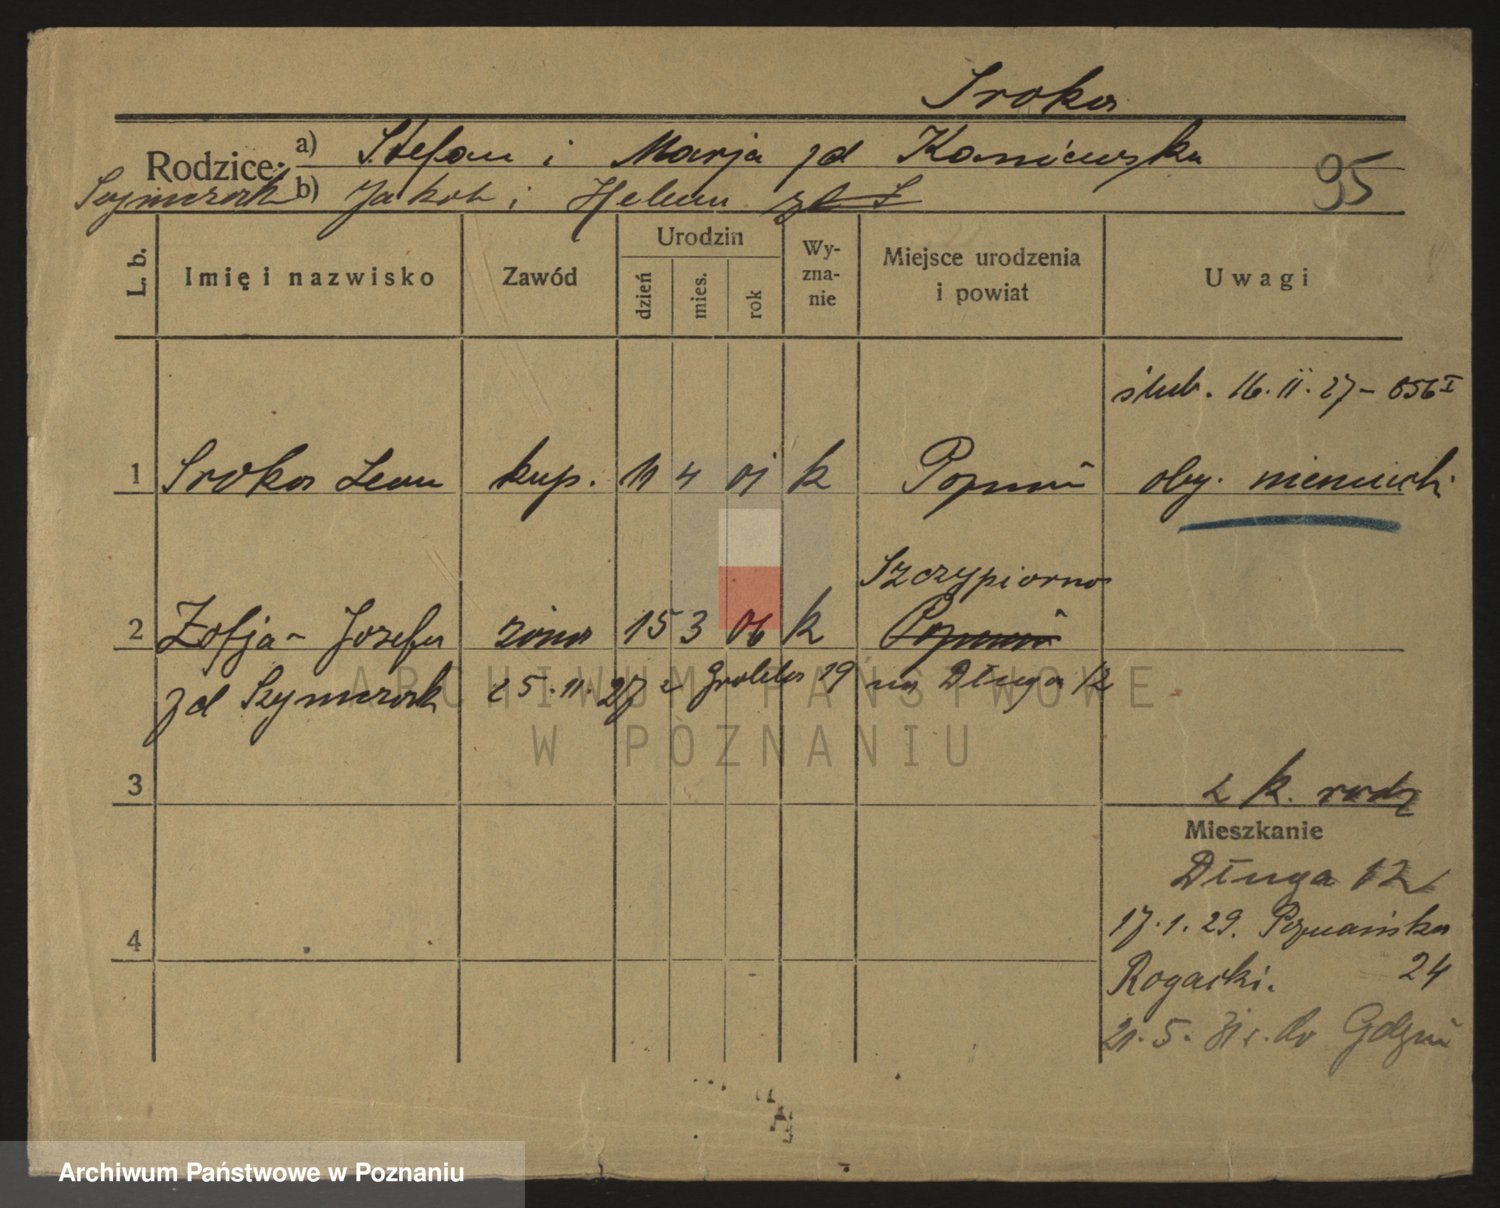 Sroka
Rodzice: a) Stefan i Marja zd Kaniewska
95
Szymczak b) Jakób i Helena
L. b.
Imię i nazwisko
Zawód
Urodzin
dzień
mies.
rok
Wy-
zna-
nie
Miejsce urodzenia
i powiat
Uwagi
ślub. 16. II. 27 - 656 I
1 Sroka Leon kup. 11 4 01 k Poznań oby. niemiecki
Szczypiorno
2 Zofja - Józefa żona 15 3 06 k Poznań
zd Szymczak 25. 11. 27 z Grobla 19 na Długa 12
ARCHIWUM PAŃSTWOWE
W POZNANIU
3
z k. rodz
Mieszkanie
Długa 12
17. 1. 29. Poznańska
4
Rogacki. 24
21. 5. 31 r. do Gdyni
Archiwum Państwowe w Poznaniu